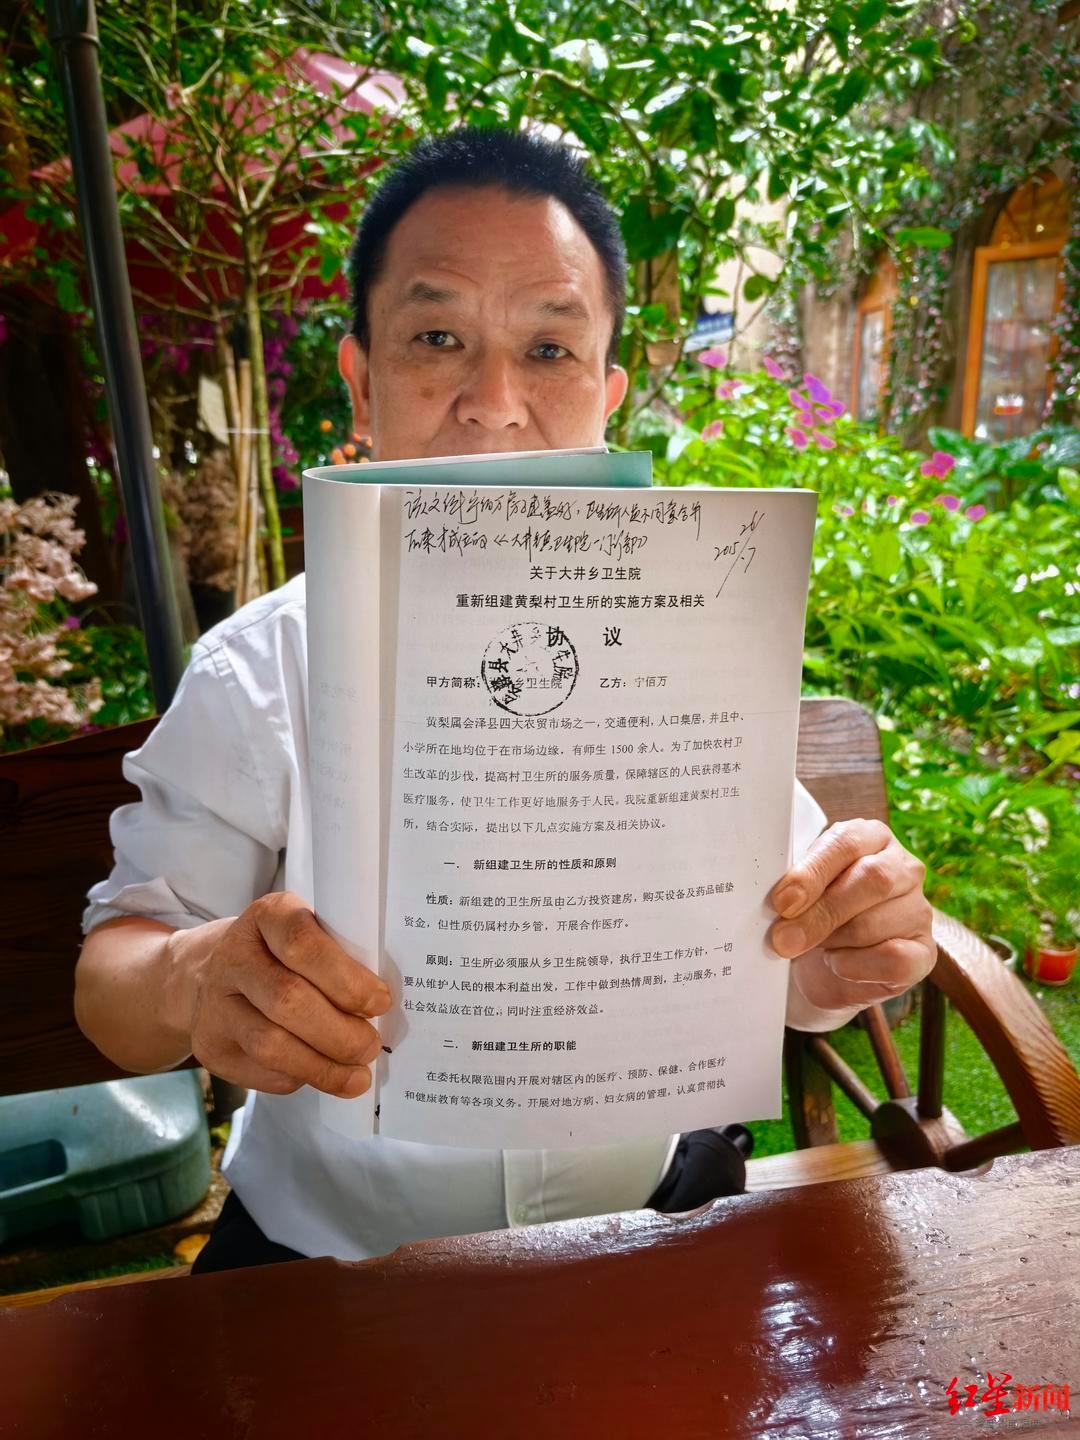 2015.7/26
关于大井乡卫生院
重新组建黄梨村卫生所的实施方案及相关
协 议
甲方简称: 乡卫生院 乙方:宁佰万
黄梨属会泽县四大农贸市场之一，交通便利，人口集居，并且中、
小学所在地均位于在市场边缘，有师生 1500 余人。为了加快农村卫
生改革的步伐，提高村卫生所的服务质量，保障辖区的人民获得基本
医疗服务，使卫生工作更好地服务于人民。我院重新组建黄梨村卫生
所，结合实际，提出以下几点实施方案及相关协议。
一． 新组建卫生所的性质和原则
性质：新组建的卫生所虽由乙方投资建房，购买设备及药品铺垫
资金，但性质仍属村办乡管，开展合作医疗。
原则：卫生所必须服从乡卫生院领导，执行卫生工作方针，一切
要从维护人民的根本利益出发，工作中做到热情周到，主动服务，把
社会效益放在首位，同时注重经济效益。
二． 新组建卫生所的职能
在委托权限范围内开展对辖区内的医疗、预防、保健、合作医疗
和健康教育等各项义务。开展对地方病、妇女病的管理，认真贯彻执
1
红星新闻